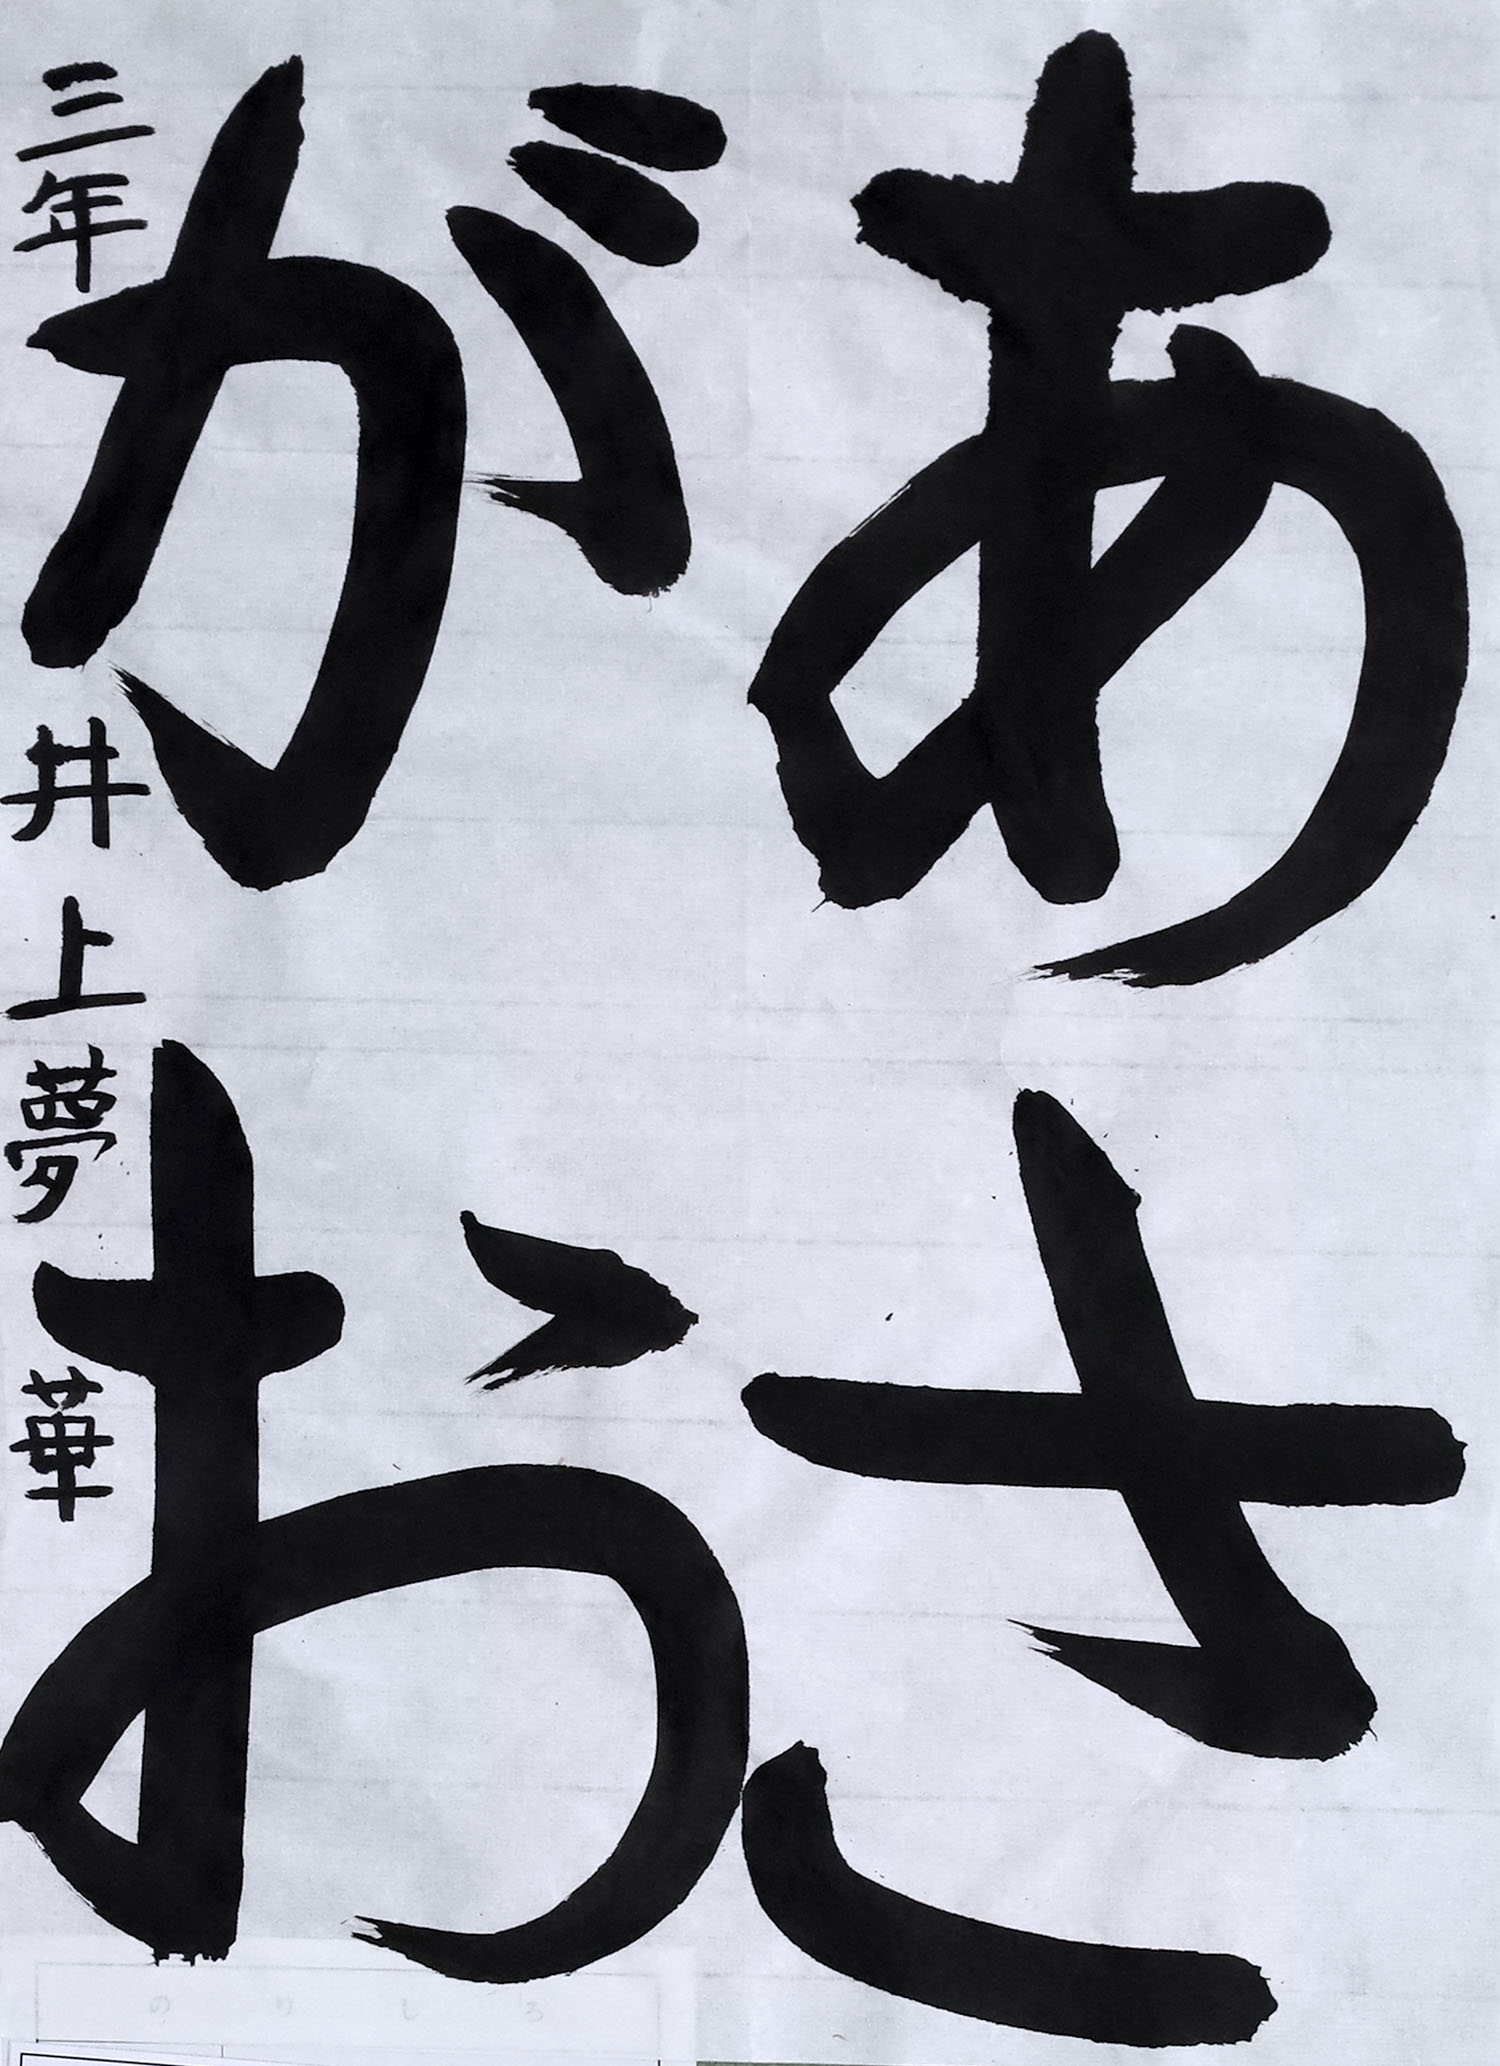 あさ
がお
三年 井上夢華
のりしろ